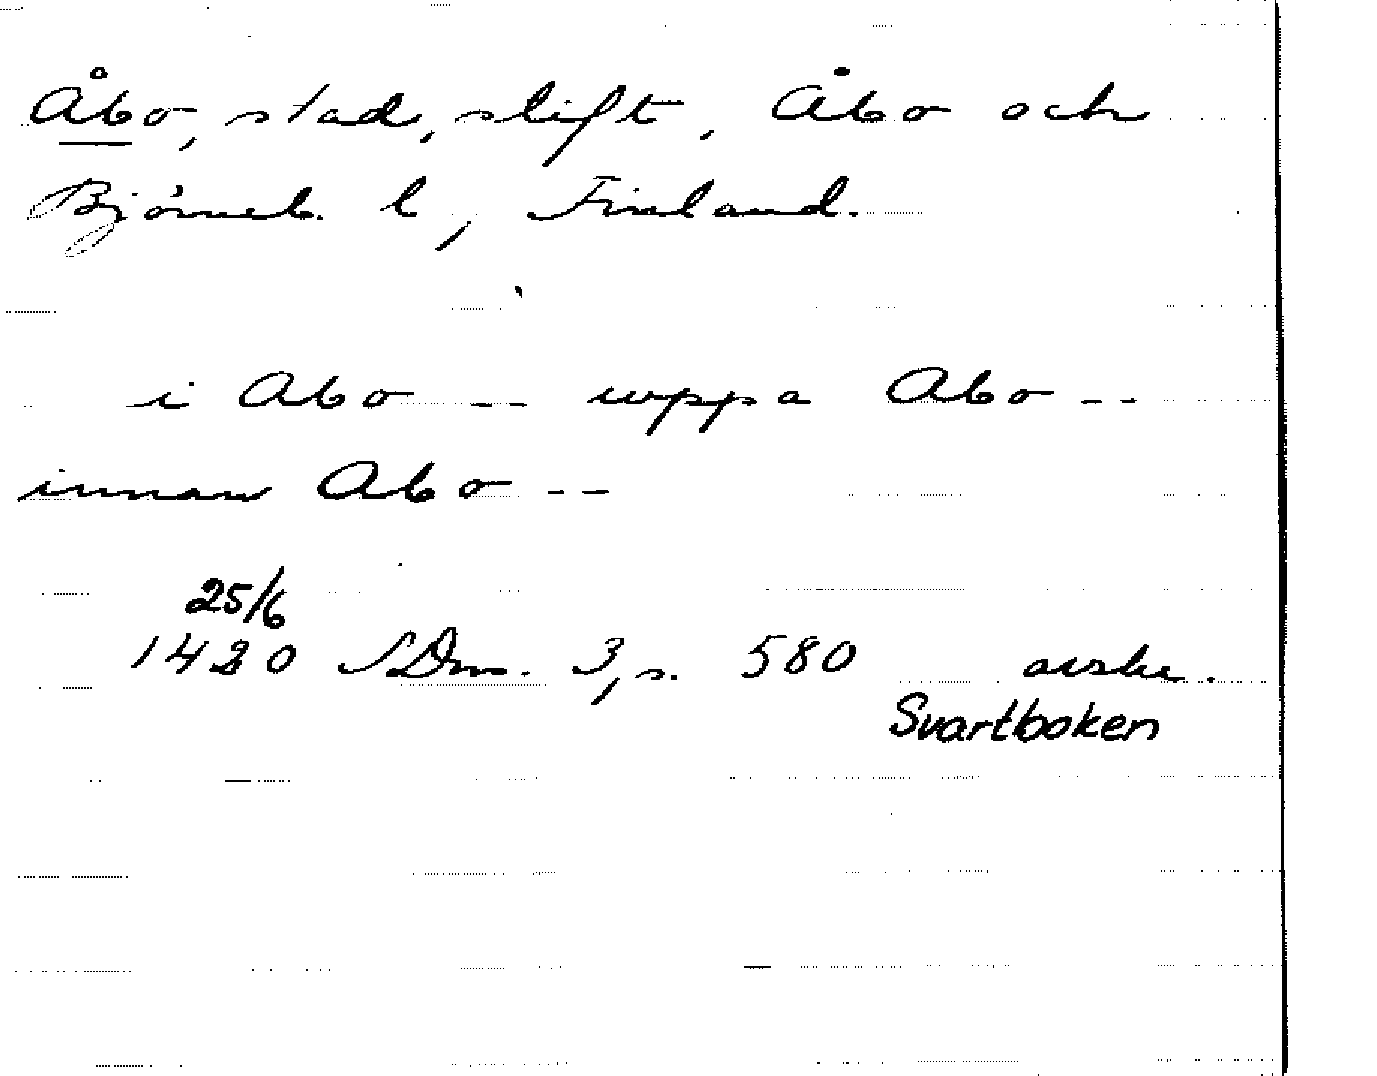 Åbo, stad, stift, Åbo och
Björneb. l, Finland.
i Abo -- uppa Abo --
innan Abo --
25/6
1420 SDns. 3, s. 580 avskr.
Svartboken